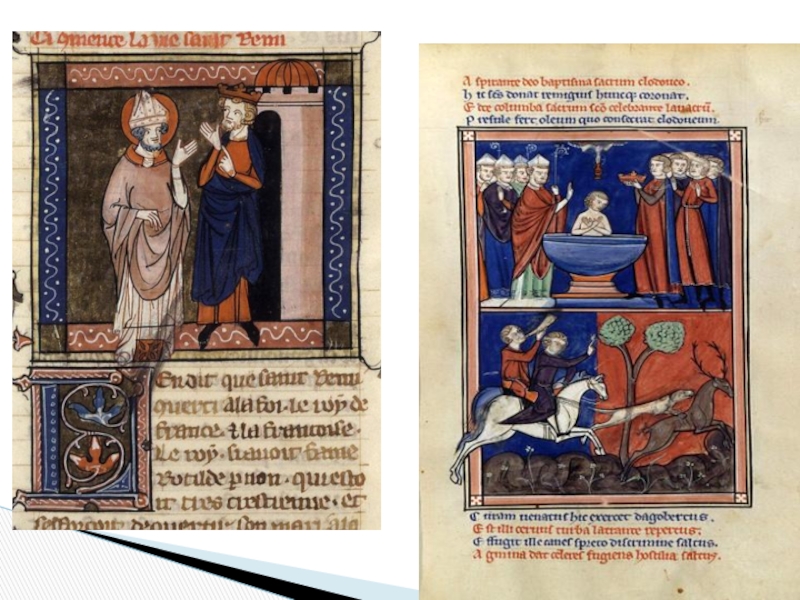 Ci 9mence la vie saint Remi
En dit que saint Remi
9uerti a la foi le roy de
france & la francoise.
Le roy si auoit fame
Rotilde p non. qui esto
it tres crestienne. et
de 9uertir son mari a la
A spirante deo baptisma sacrum clodoueo.
H ic scs donat remigius huncq; coronat.
E cce columba sacrum sco celebrante lauacru.
P resule fert oleum quo consecrat clodoueum.
C uram uenatus hic exercet dagobertus.
E st illi ceruus turba latrante repertus.
E ffugit ille canes spreto discrimine saltus.
A gmina dat celeres fugiens hostilia saltus.